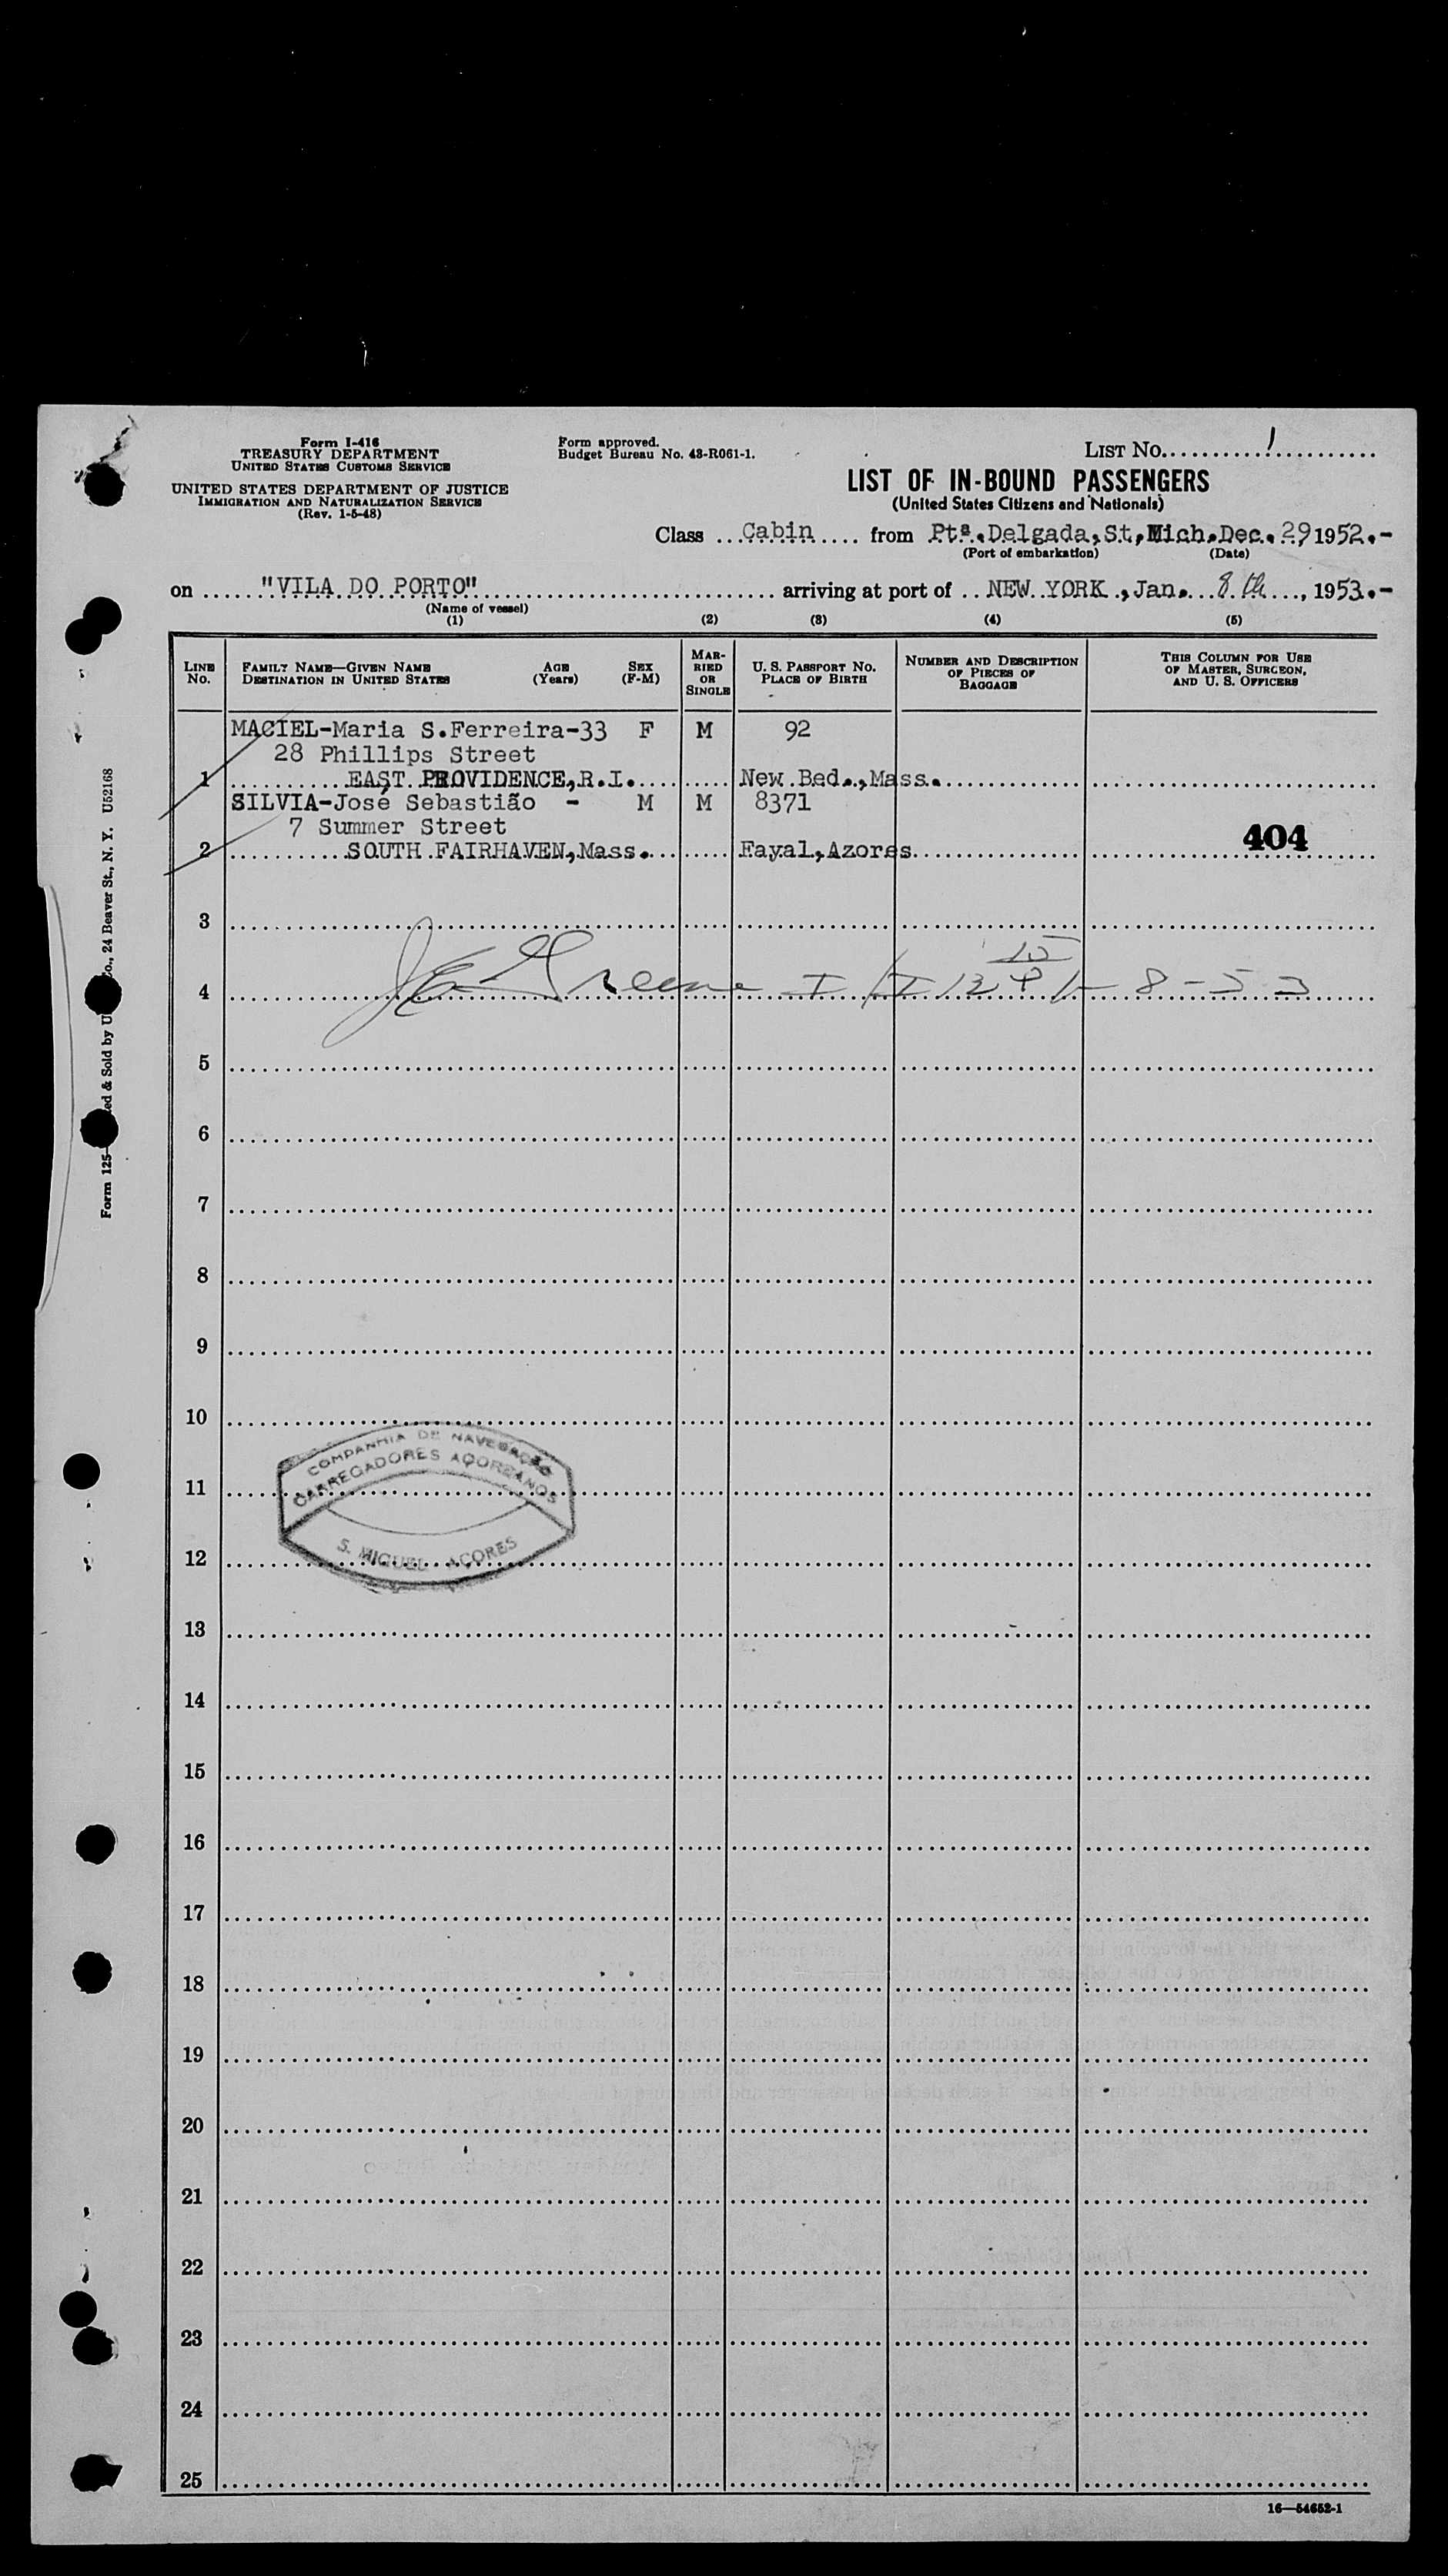 Form I-416
TREASURY DEPARTMENT
UNITED STATES CUSTOMS SERVICE
UNITED STATES DEPARTMENT OF JUSTICE
IMMIGRATION AND NATURALIZATION SERVICE
(Rev. 1-5-48)
Form approved.
Budget Bureau No. 43-R061-1.
LIST NO. 1
LIST OF IN-BOUND PASSENGERS
(United States Citizens and Nationals)
Class Cabin from Ptª. Delgada, St, Mich. Dec. 29 1952.-
(Port of embarkation) (Date)
on "VILA DO PORTO" arriving at port of NEW YORK, Jan. 8th, 1953.-
(Name of vessel)
(1) (2) (3) (4) (5)
LINE NO. FAMILY NAME—GIVEN NAME DESTINATION IN UNITED STATES AGE (Years) SEX (F-M) MARRIED OR SINGLE U. S. PASSPORT NO. PLACE OF BIRTH NUMBER AND DESCRIPTION OF PIECES OF BAGGAGE THIS COLUMN FOR USE OF MASTER, SURGEON, AND U. S. OFFICERS
MACIEL-Maria S.Ferreira-33 F M 92
28 Phillips Street
1 EAST PROVIDENCE, R.I. New Bed., Mass.
SILVIA-José Sebastião - M M 8371
7 Summer Street
404
2 SOUTH FAIRHAVEN, Mass. Fayal, Azores
3
4 Greene 1-8-53
5
6
7
8
9
10
COMPANHIA DE NAVEGAÇÃO
CARREGADORES AÇOREANOS
11
S. MIGUEL AÇORES
12
13
14
15
16
17
18
19
20
21
22
23
24
25
16—54652-1
Form 125 ed & Sold by U Co., 24 Beaver St., N. Y. U52168